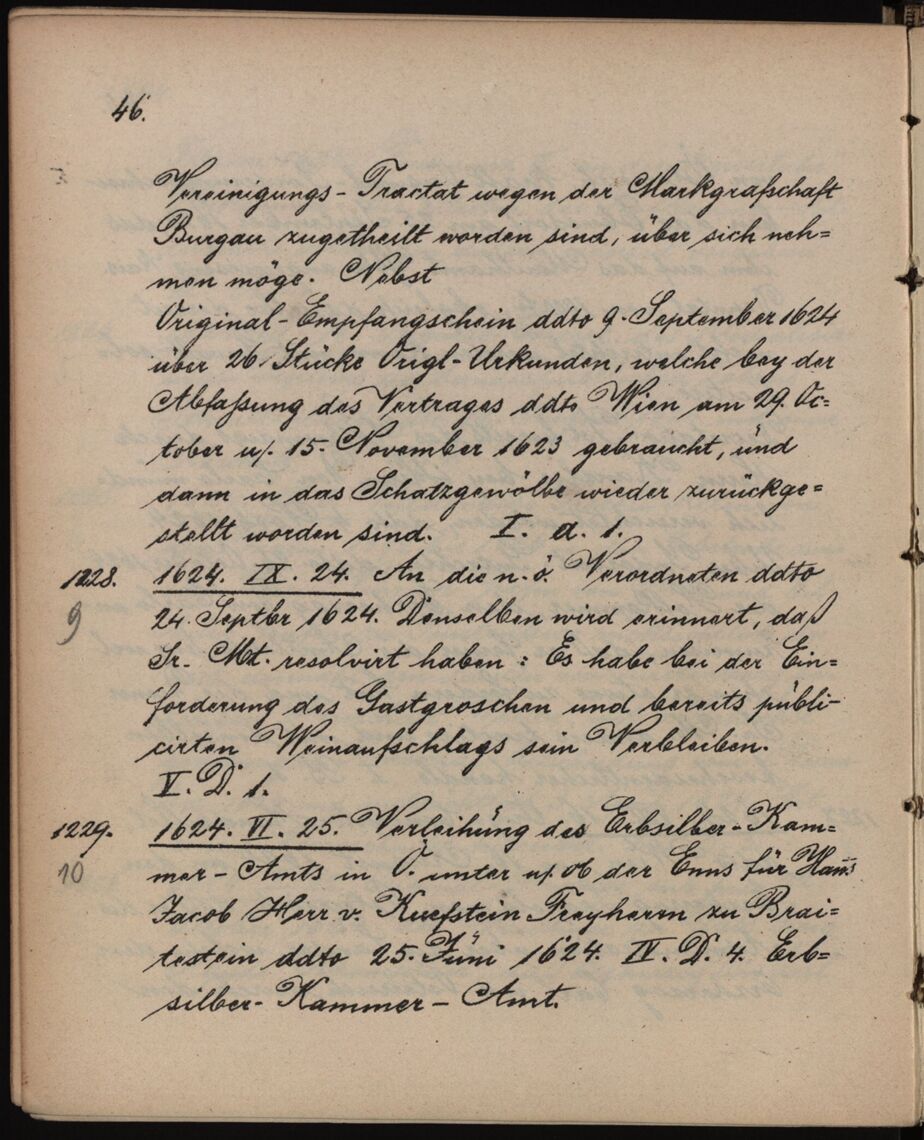 46.
Vereinigungs-Tractat wegen der Markgrafschaft
Burgau zugetheilt worden sind, über sich neh=
men möge. Nebst
Original-Empfangschein ddto 9. September 1624
über 26 Stücke Origl-Urkunden, welche bey der
Abfaßung des Vertrages ddto Wien am 29. Oc=
tober u/. 15. November 1623 gebraucht, und
dann in das Schatzgewölbe wieder zurückge=
stellt worden sind. I. a. 1.
1228. 1624. IX. 24. An die n. ö. Verordneten ddto
9 24. Septbr 1624. Denselben wird erinnert, daß
Sr. Mt. resolvirt haben: Es habe bei der Ein=
forderung des Gastgroschen und bereits publi-
cirten Weinaufschlags sein Verbleiben.
V. D. 1.
1229. 1624. VI. 25. Verleihung des Erbsilber-Kam=
10 mer-Amts in Ö. unter u/. ob der Enns für Hanns
Jacob Herr v. Kuefstein Freyherrn zu Brai=
testein ddto 25. Juni 1624. IV. D. 4. Erb=
silber-Kammer-Amt.